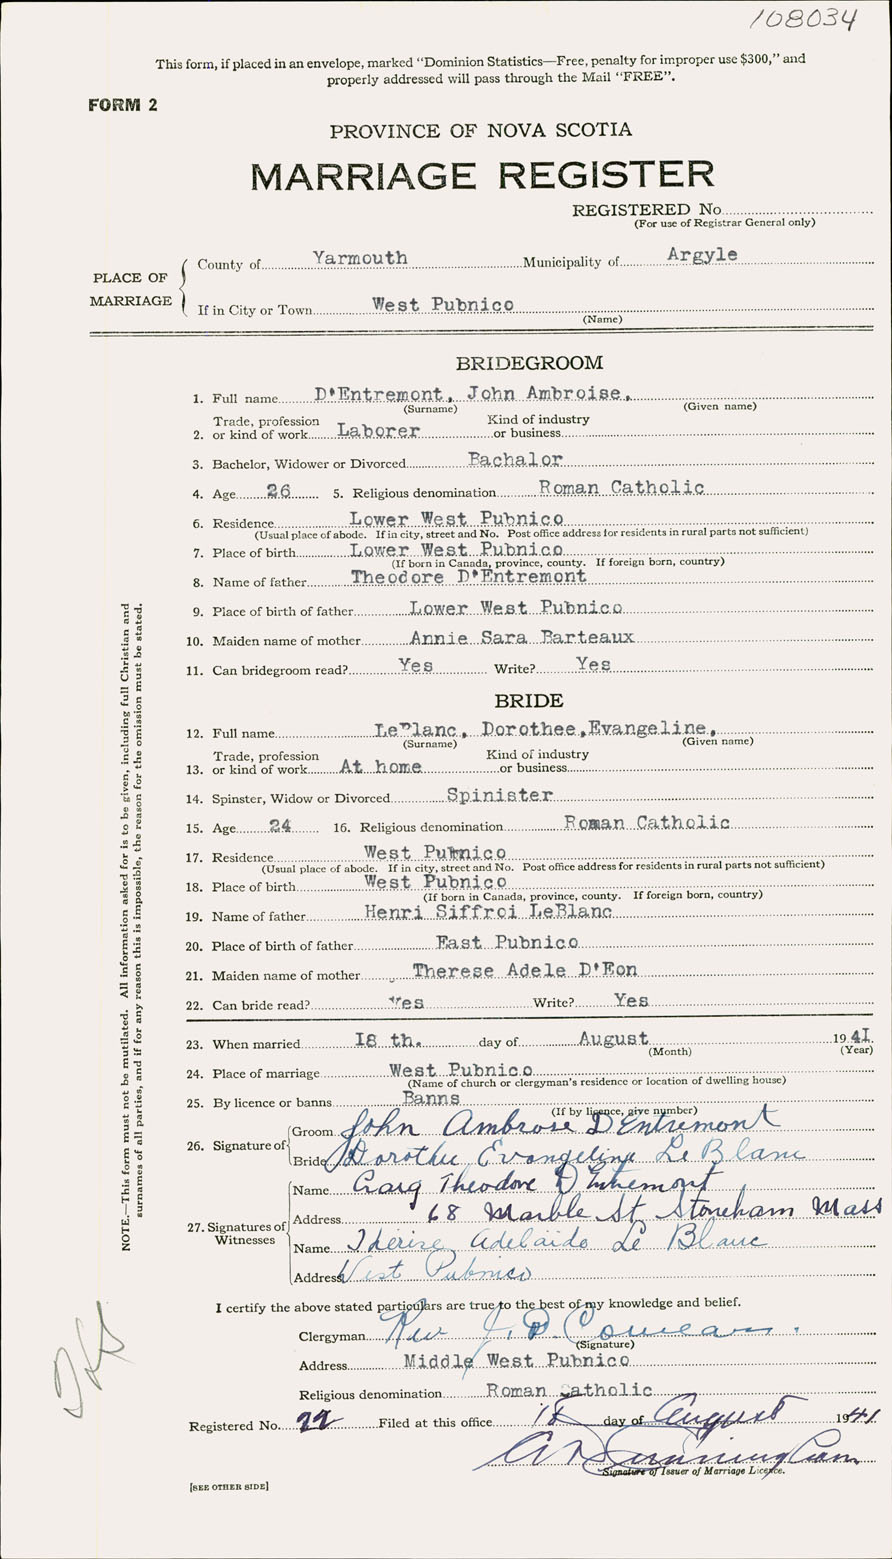 108034
This form, if placed in an envelope, marked "Dominion Statistics—Free, penalty for improper use $300," and
properly addressed will pass through the Mail "FREE".
FORM 2
PROVINCE OF NOVA SCOTIA
MARRIAGE REGISTER
REGISTERED No
(For use of Registrar General only)
PLACE OF MARRIAGE
County of Yarmouth Municipality of Argyle
If in City or Town West Pubnico
(Name)
BRIDEGROOM
1. Full name D'Entremont, John Ambroise,
(Surname) (Given name)
Trade, profession Kind of industry
2. or kind of work Laborer or business
3. Bachelor, Widower or Divorced Bachalor
4. Age 26 5. Religious denomination Roman Catholic
6. Residence Lower West Pubnico
(Usual place of abode. If in city, street and No. Post office address for residents in rural parts not sufficient)
7. Place of birth Lower West Pubnico
(If born in Canada, province, county. If foreign born, country)
8. Name of father Theodore D'Entremont
9. Place of birth of father Lower West Pubnico
10. Maiden name of mother Annie Sara Barteaux
11. Can bridegroom read? Yes Write? Yes
BRIDE
12. Full name LeBlanc, Dorothee, Evangeline,
(Surname) (Given name)
Trade, profession Kind of industry
13. or kind of work At home or business
14. Spinster, Widow or Divorced Spinister
15. Age 24 16. Religious denomination Roman Catholic
17. Residence West Pubnico
(Usual place of abode. If in city, street and No. Post office address for residents in rural parts not sufficient)
18. Place of birth West Pubnico
(If born in Canada, province, county. If foreign born, country)
19. Name of father Henri Siffroi LeBlanc
20. Place of birth of father East Pubnico
21. Maiden name of mother Therese Adele D'Eon
22. Can bride read? Yes Write? Yes
23. When married I8 th. day of August 1941
(Month) (Year)
24. Place of marriage West Pubnico
(Name of church or clergyman's residence or location of dwelling house)
25. By licence or banns Banns
(If by licence, give number)
26. Signature of
Groom John Ambrose D'Entremont
Bride Dorothee Evangeline LeBlanc
27. Signatures of Witnesses
Name Craig Theodore D'Entremont
Address 68 Marble St Stoneham Mass
Name Thérèse Adelaïde Le Blanc
Address West Pubnico
I certify the above stated particulars are true to the best of my knowledge and belief.
Clergyman Rev J. D. Comeau.
(Signature)
Address Middle West Pubnico
Religious denomination Roman Catholic
Registered No. 22 Filed at this office 18 day of August 1941
Signature of Issuer of Marriage Licence.
[SEE OTHER SIDE]
NOTE.—This form must not be mutilated. All information asked for is to be given, including full Christian and
surnames of all parties, and if for any reason this is impossible, the reason for the omission must be stated.